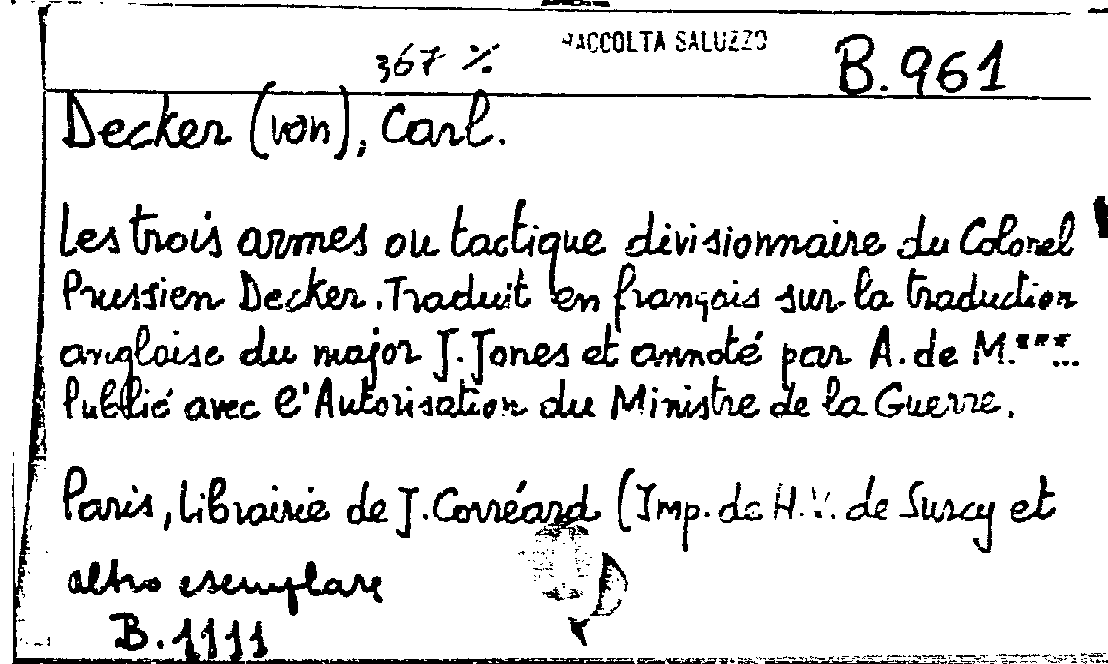 367 %
RACCOLTA SALUZZO
B.961
Decker (von), Carl.
Les trois armes ou tactique divisionnaire du Colonel
Prussien Decker. Traduit en françois sur la traduction
angloise du major J. Jones et annoté par A. de M.***...
Publié avec l'Autorisation du Ministre de la Guerre.
Paris, Librairie de J. Corréard (Imp. de H.V. de Surcy et
altro esemplare
B.1111